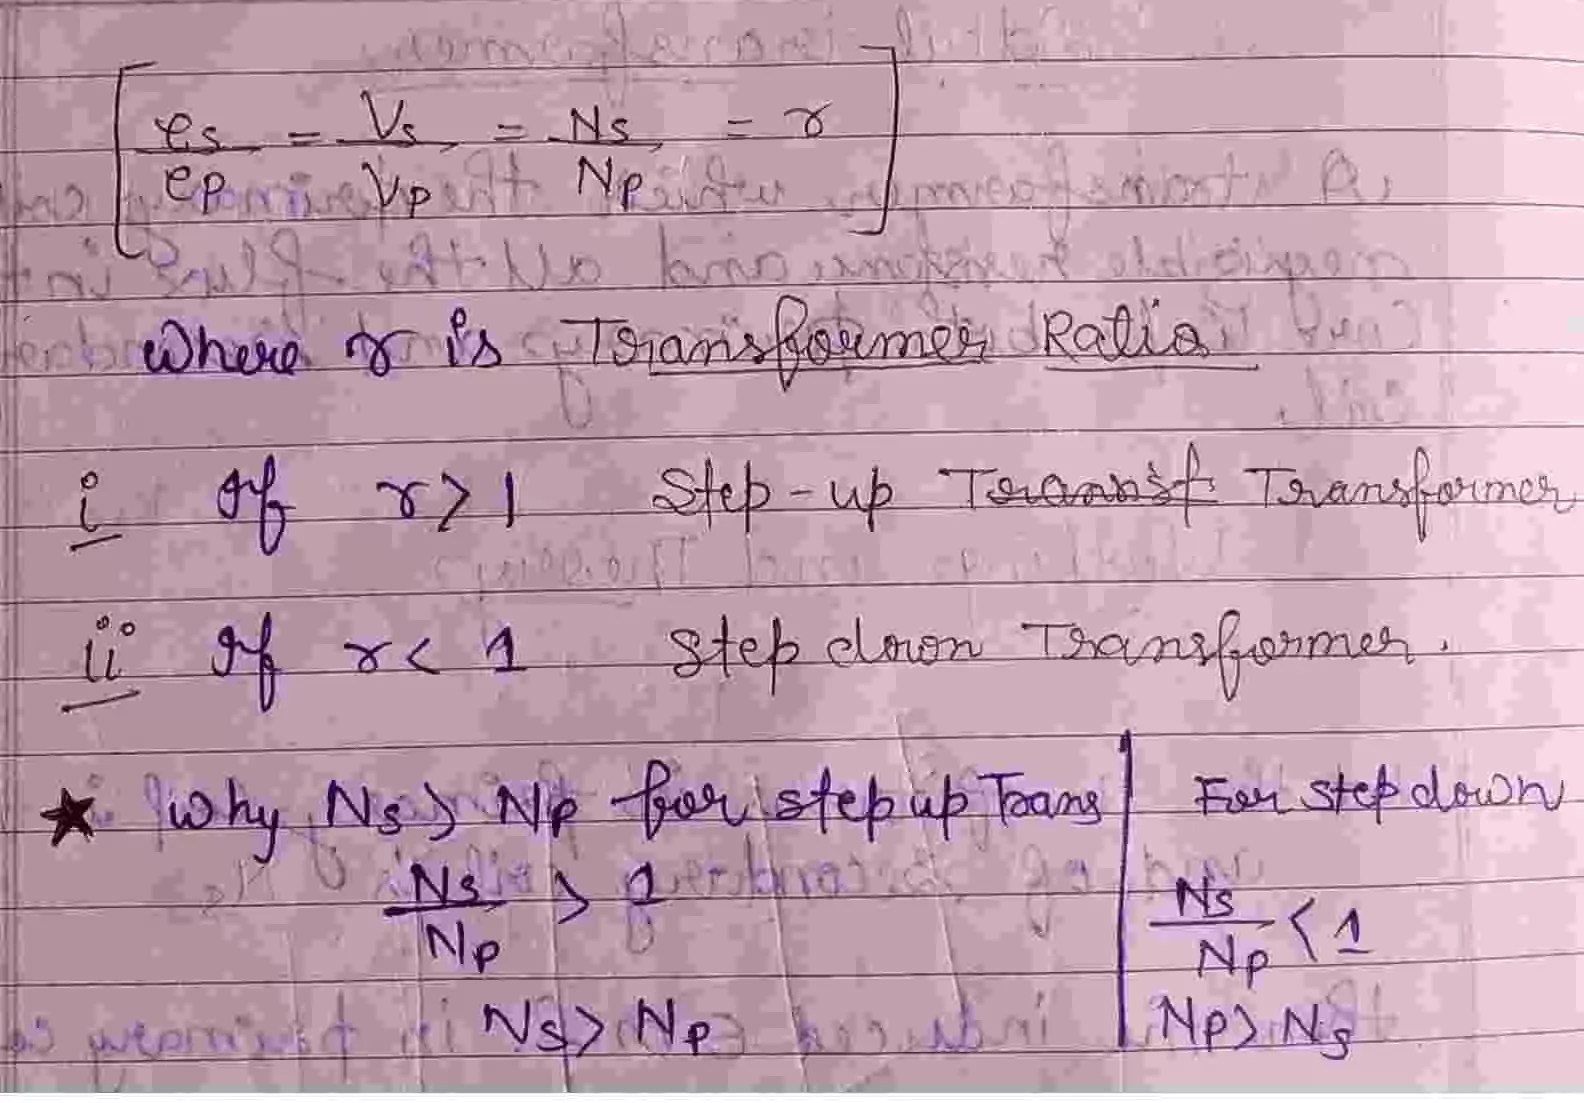 es/ep = Vs/Vp = Ns/Np = r
Where r is Transformer Ratio
i If r > 1 Step-up Transf Transformer
ii If r < 1 Step down Transformer.
★ Why Ns > Np for step up Trans | For step down
Ns/Np > 1 | Ns/Np < 1
Ns > Np | Np > Ns